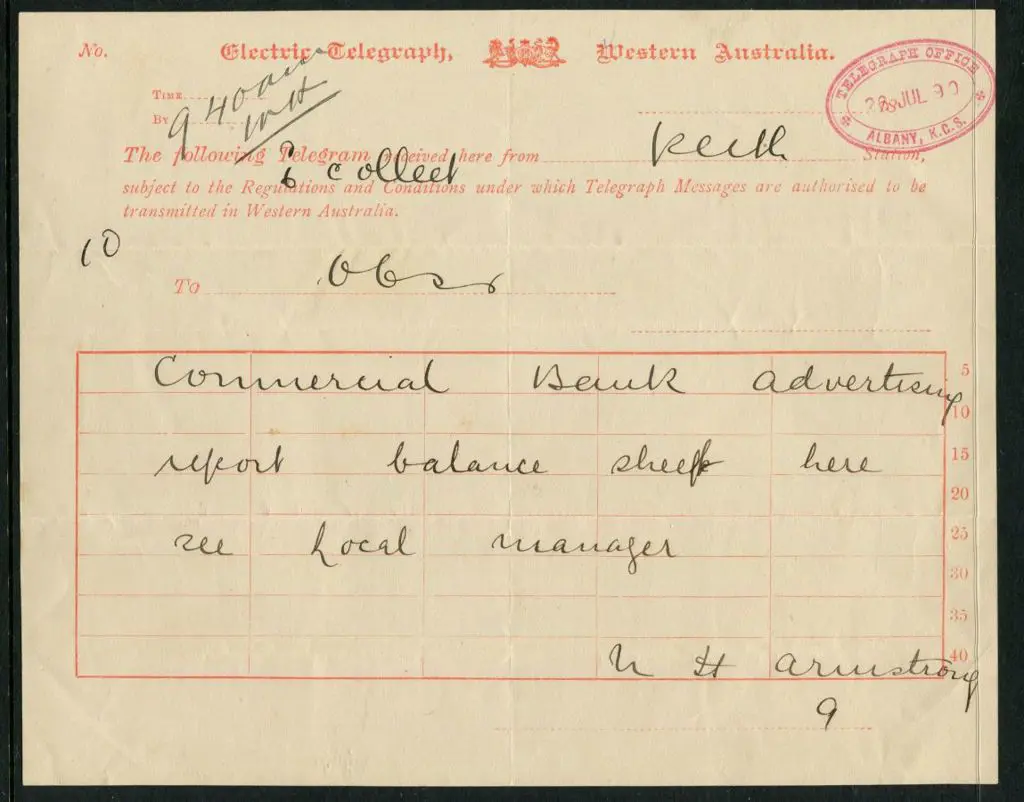 No. Electric Telegraph, Western Australia.
TELEGRAPH OFFICE
28 JUL 90
ALBANY, K.G.S.
TIME 9 40 am
BY
The following Telegram received here from Station,
collect
subject to the Regulations and Conditions under which Telegraph Messages are authorised to be
transmitted in Western Australia.
10
To Obsr
Commercial Bank advertising 5
10
report balance sheet here 15
20
see Local manager 25
30
35
N H Armstrong 40
9